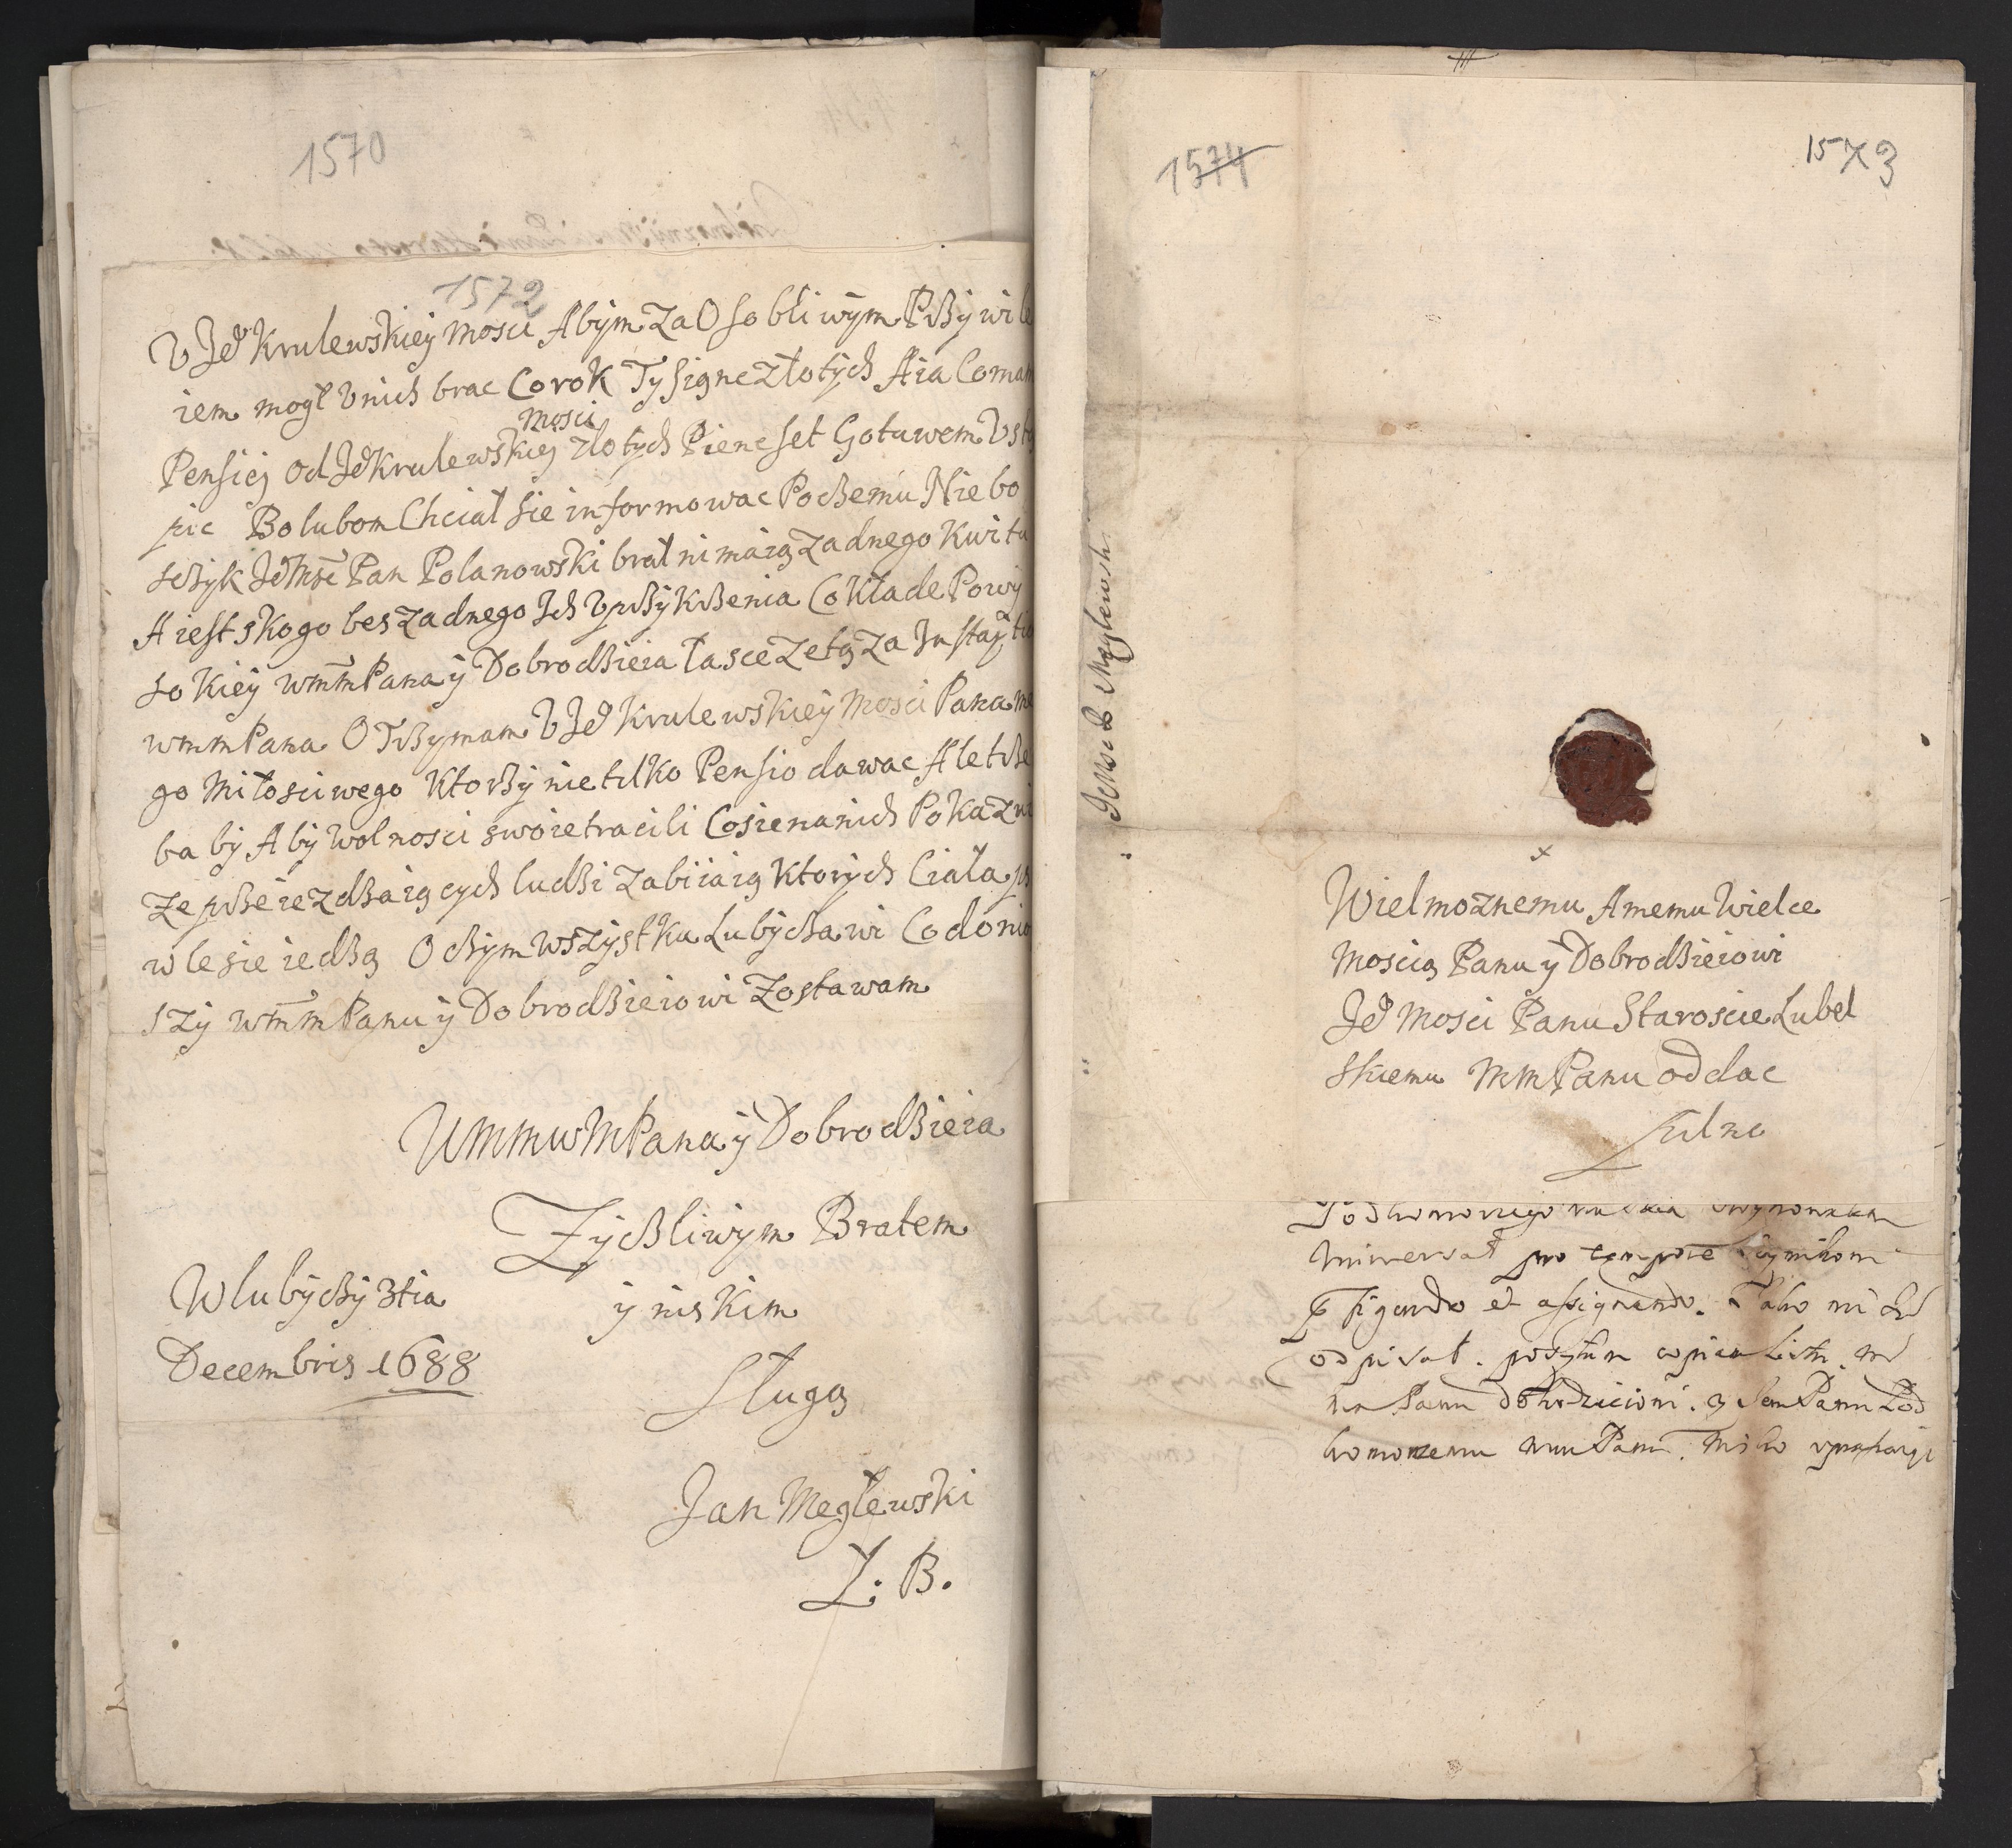 1570
1572
V Je Krulewskiey Mosci Abym Za Osobliwym Pßywile
iem mogł Vnich brac Corok Tysignc Złotych A ia Coma
Mosci
Pensiej od Je Krulewskiej złotych Piencset Gotuwem Vst
pic Bo lubom Chciał sie informowac Poczemu Nie bo
sczyk Je Mse Pan Polanowski brał ni maią Zadnego Kwitu
A iest skogo bes Zadnego Ich Vpßykßenia Co Klade Powy
sokiey wmm Pana y Dobrodßieia łasce Zetą Za Instaÿ
wmm Pana Otßymam V Je Krulewskiey Mosci Pana me
go Miłosciwego Ktorßy nie tilko Pensio dawac Ale tße
ba by Aby Wolnosci swoie tracili Cosie na nich Pokaz
ze pßeiezdßaiących ludßi Zabiiaią Ktorych Ciała
w lesie iedßą O czym wszystku Lubyczawi Co donio
szy wmm Panu y Dobrodßieiowi Zostawam
Wmmwm Pana y Dobrodßieia
Zyczliwym Bratem
y niskim
Slugą
W lubyczy 3tia
Decembris 1688
Jan Megłewski
Z. B.
1574
15 73
Wielmoznemu Amemu Wielce
Moscią Panu y Dobrodßieiowi
Je Mosci Panu Staroscie Lubel
skiemu Mm Panu oddac
pilne
Uniwersał pro tempore
et assignando. Tako mi
odpisał. posyłam copia listu
Panu dobrodzieiowi. Panu Pod
komorzemu Panu.